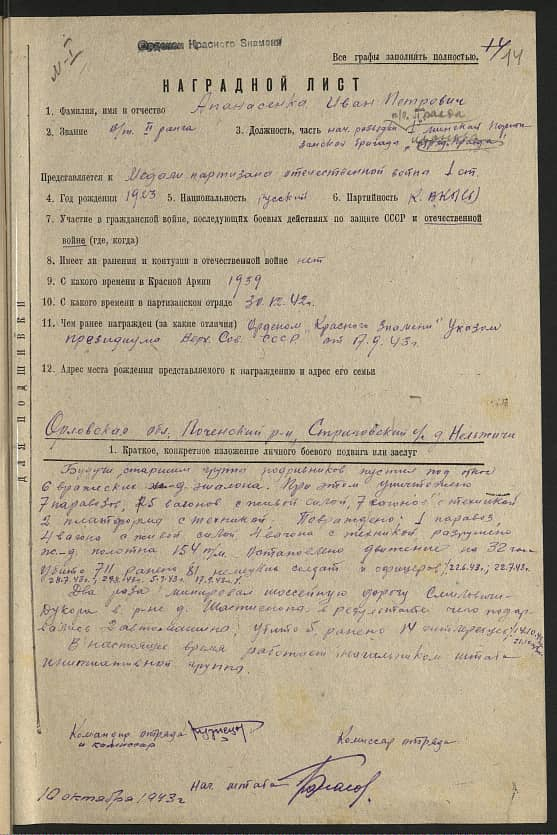 Орденом Красного Знамени
№-1
Все графы заполнять полностью.
14
НАГРАДНОЙ ЛИСТ
1. Фамилия, имя и отчество Апанасенка Иван Петрович
п/о. Правда
2. Звание в/т. II ранга 3. Должность, часть нач. разведки 1 Минская Парти
занская бригада,
Представляется к Медали партизана отечественной война 1 ст.
4. Год рождения 1923 5. Национальность русский 6. Партийность К. ВКП(б)
7. Участие в гражданской войне, последующих боевых действиях по защите СССР и отечественной
войне (где, когда)
8. Имеет ли ранения и контузии в отечественной войне нет
9. С какого времени в Красной Армии 1939
10. С какого времени в партизанском отряде 30.12.42г.
11. Чем ранее награжден (за какие отличия) Орденом "Красного Знамени" Указом
президиума Верх. Сов. СССР от 17.9.43г.
12. Адрес места рождения представляемого к награждению и адрес его семьи
ДЛЯ ПОДШИВКИ
Орловская обл. Поченский р-н, Стриговский с/с д.
1. Краткое, конкретное изложение личного боевого подвига или заслуг
Будучи старшим группа подрывников пустил под откос
6 вражеских ж-д. эшалона. При этом уничтожено
7 паравозов, 25 вагонов с живой силой, 7 вагонов с техникой
2 платформа с техникой. Повраждено: 1 паравоз,
4 вагона с живой силой, 4 вагона с техникой, разрушено
ж-д. полотна 154 п/м. Остановлено движение на 32 час.
Убито 711 ранено 81 немецких солдат и офицеров, 22.6.43г., 22.7.43г.
28.7.43г.; 29.8.43г. 5.9.43г. 17.9.43г.
Два раза минировал шоссейную дорогу Смильвичи-
Дукора в р-не д. в результате чего подар-
вались 2 автомашина; убито 5, ранено 14
В настоящее время работает начальником штаба
инициативной группа.
Командир отряда Кузнецов
и комиссар
Комиссар отряда
Нач. штаба
10 октября 1943г